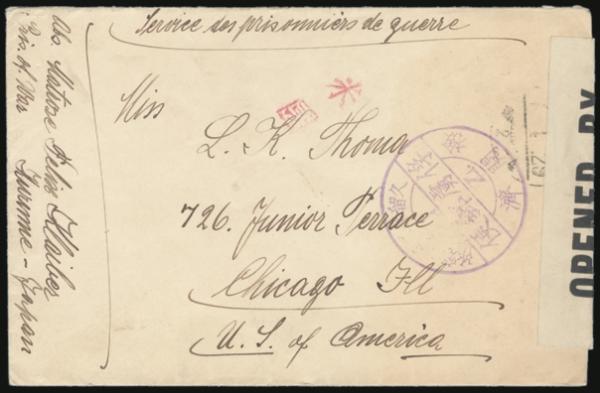 Service des prisonniers de guerre
Miss
L. K. Thoma
726. Junior Terrace
Chicago Ill
U. S. of America
Abs. Matrose Felix
Pris. of War Kurume - Japan
OPENED BY
久留
濟